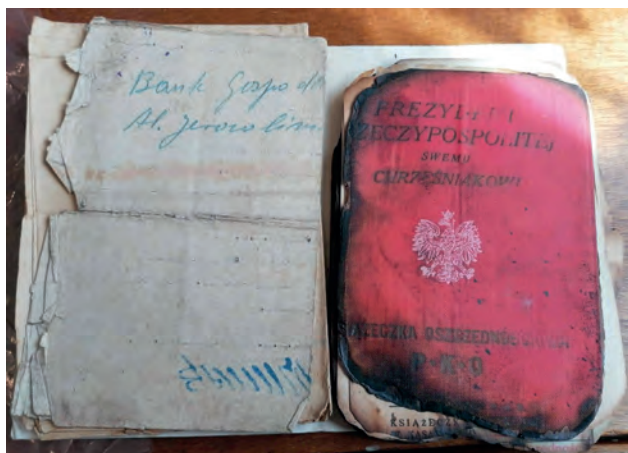 Bank Gospod
Al. Jerozolim
PREZYDENT
RZECZYPOSPOLITEJ
SWEMU
CHRZEŚNIAKOWI
OSZCZĘDNOŚCIOWA
P·K·O
KSIĄŻECZ